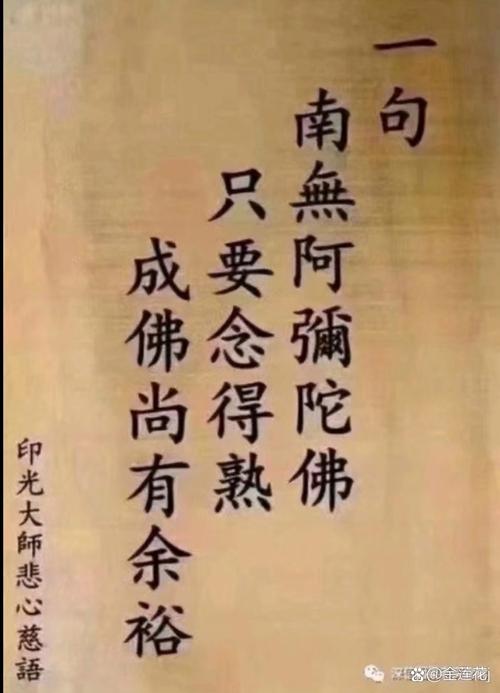 一句
南無阿彌陀佛
只要念得熟
成佛尚有余裕
印光大師悲心慈語
@金莲花